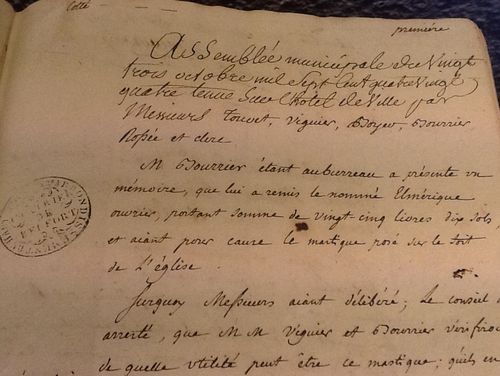 Cotté
première
Assemblée municipale de vingt
trois octobre mil Sept Cent quatre vingt
quatre tenue Sur l'hôtel de Ville par
Messieurs Touvet, viguier, Boyer, Bourrier
Rosée et clerc
M Bourrier étant au burreau a présenté un
mémoire, que lui a remis le nommé Elmérique
ouvrier, portant somme de vingt-cinq livres dix sols,
et aiant pour cause le mastique posé sur le toit
de L'église.
Surquoy Messieurs aiant délibéré; Le conseil
arretté, que M M Viguier et Bourrier vérifiro
de quelle utilité peut être ce mastique; qu'ils en
BELFORT